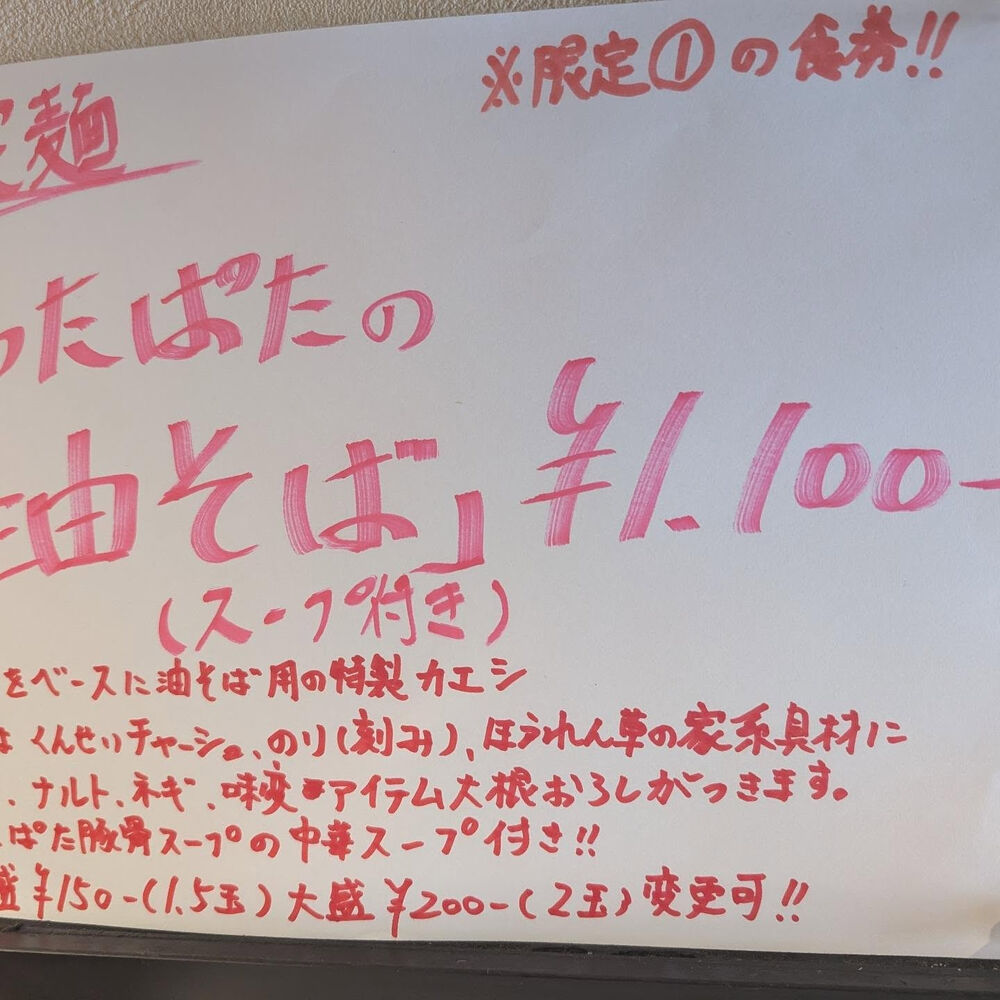 ※限定①の食券!!
定麺
ったぱたの
油そば」 ¥1.100-
(スープ付き)
をベースに油そば用の特製カエシ
はくんせいチャーシュー、のり(刻み)、ほうれん草の家系具材に
、ナルト、ネギ、味変アイテム大根おろしがつきます。
ぱた豚骨スープの中華スープ付き!!
盛¥150-(1.5玉) 大盛¥200-(2玉)変更可!!